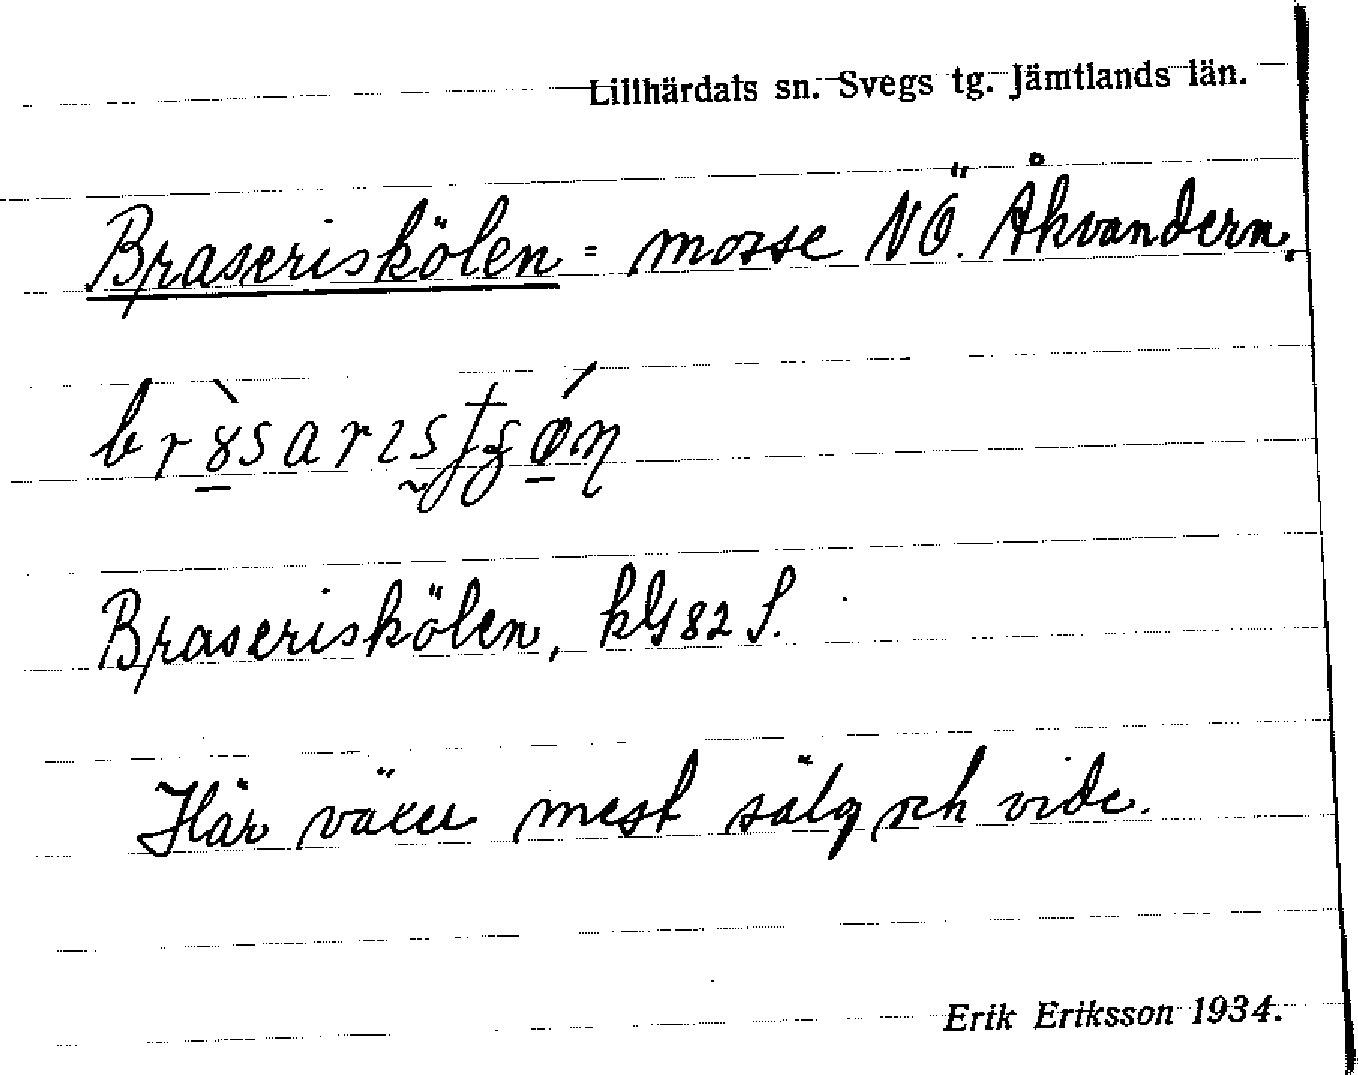 Lillhärdals sn. Svegs tg. Jämtlands län.
Braseriskölen = mosse NÖ. Åkvandern.
Braseriskölen, kG 82 S.
Här växer mest sälg och vide.
Erik Eriksson 1934.